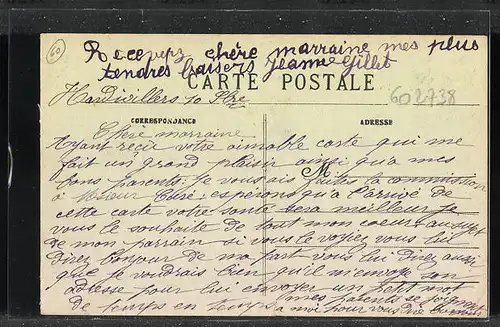 60
Recevez chère marraine mes plus
tendres baisers Jeanne Gillet
CARTE POSTALE
Hardivillers 10
602738
CORRESPONDANCE
ADRESSE
Chère marraine
Ayant reçu votre aimable carte qui me
fait un grand plaisir ainsi qu'a mes
bons parents. Je vous ais faites la commission
à Mr : espérons qu'a l'arivé de
cette carte votre santé sera meilleur je
vous le souhaite de tout mon coeur
de mon parrain si vous le voyiez vous lui
direz bonjour de ma part vous lui direz aussi
que je voudrais bien qu'il m'envoye son
adresse pour lui envoyer un petit mot
de temps en temps mes parents se joignent
a moi pour vous dire